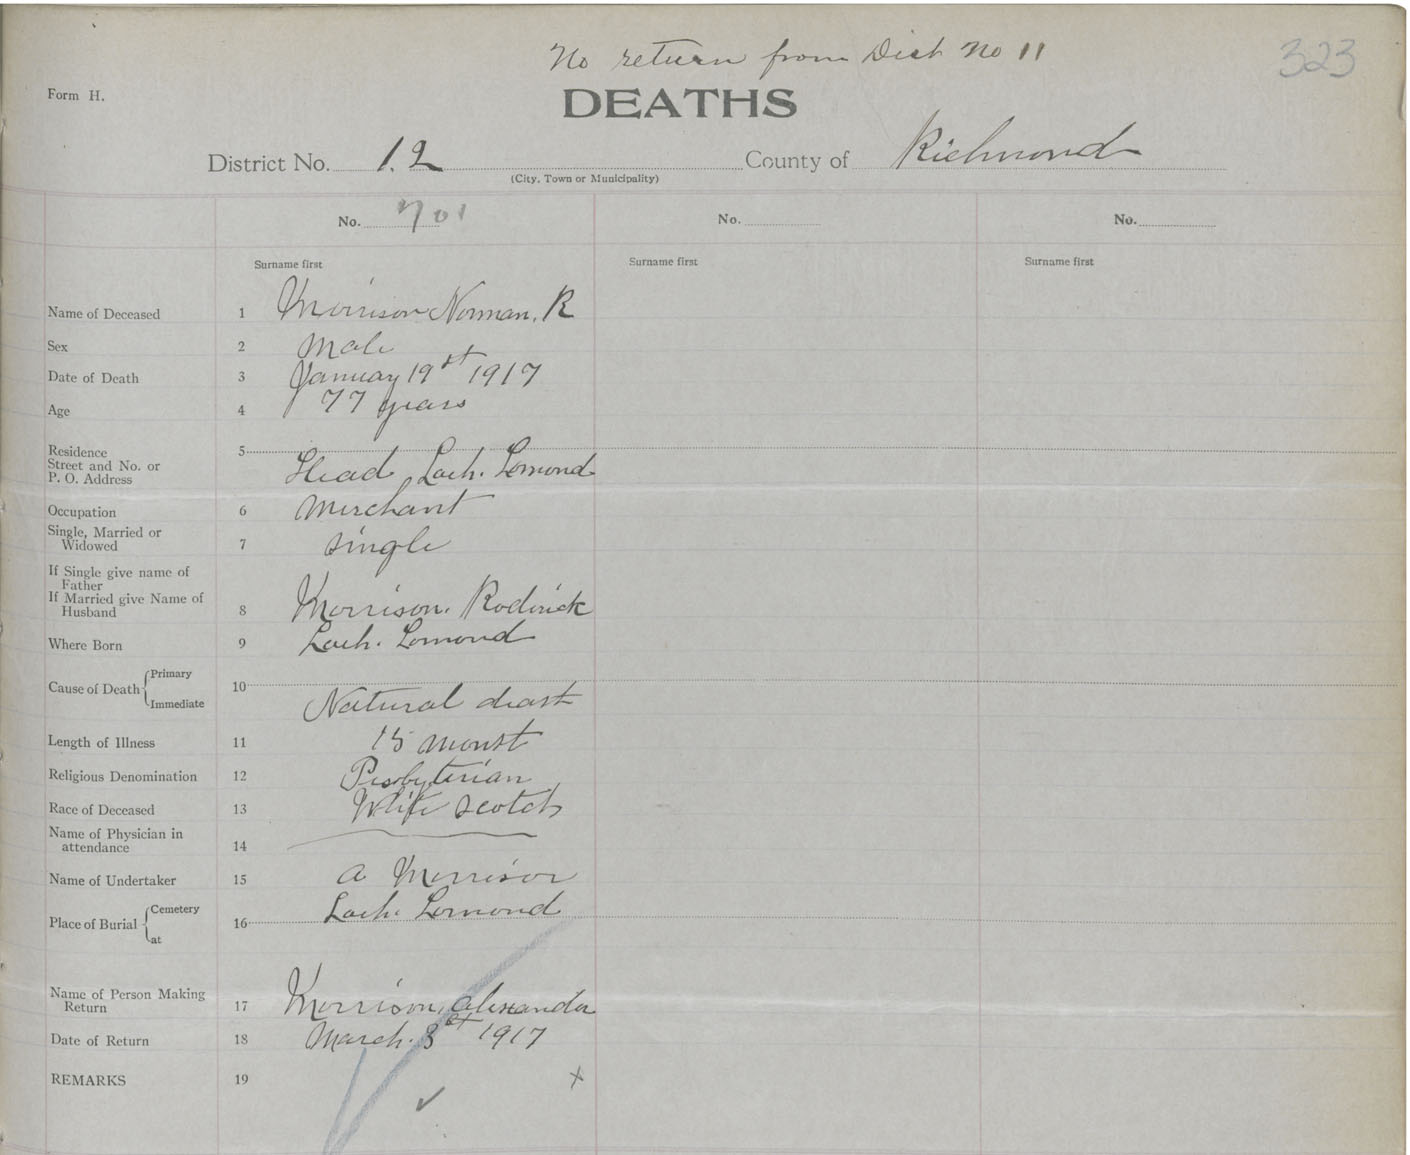 No return from Dist No 11
323
Form H.
DEATHS
District No. 12 County of Richmond
(City, Town or Municipality)
No. 701 No. No.
Surname first Surname first Surname first
Name of Deceased 1 Morrison Norman, R
Sex 2 Male
Date of Death 3 January 19st 1917
Age 4 77 years
Residence 5
Street and No. or
P. O. Address Head Loch. Lomond
Occupation 6 Merchant
Single, Married or
Widowed 7 Single
If Single give name of
Father
If Married give Name of
Husband 8 Morrison. Roderick
Where Born 9 Loch. Lomond
Primary
Cause of Death 10
Immediate Natural deast
Length of Illness 11 15 monst
Religious Denomination 12 Presbyterian
Race of Deceased 13 White Scotch
Name of Physician in
attendance 14
Name of Undertaker 15 A Morrison
Cemetery Loch. Lomond
Place of Burial 16
at
Name of Person Making
Return 17 Morrison, Alexander
Date of Return 18 March. 3st 1917
REMARKS 19 x